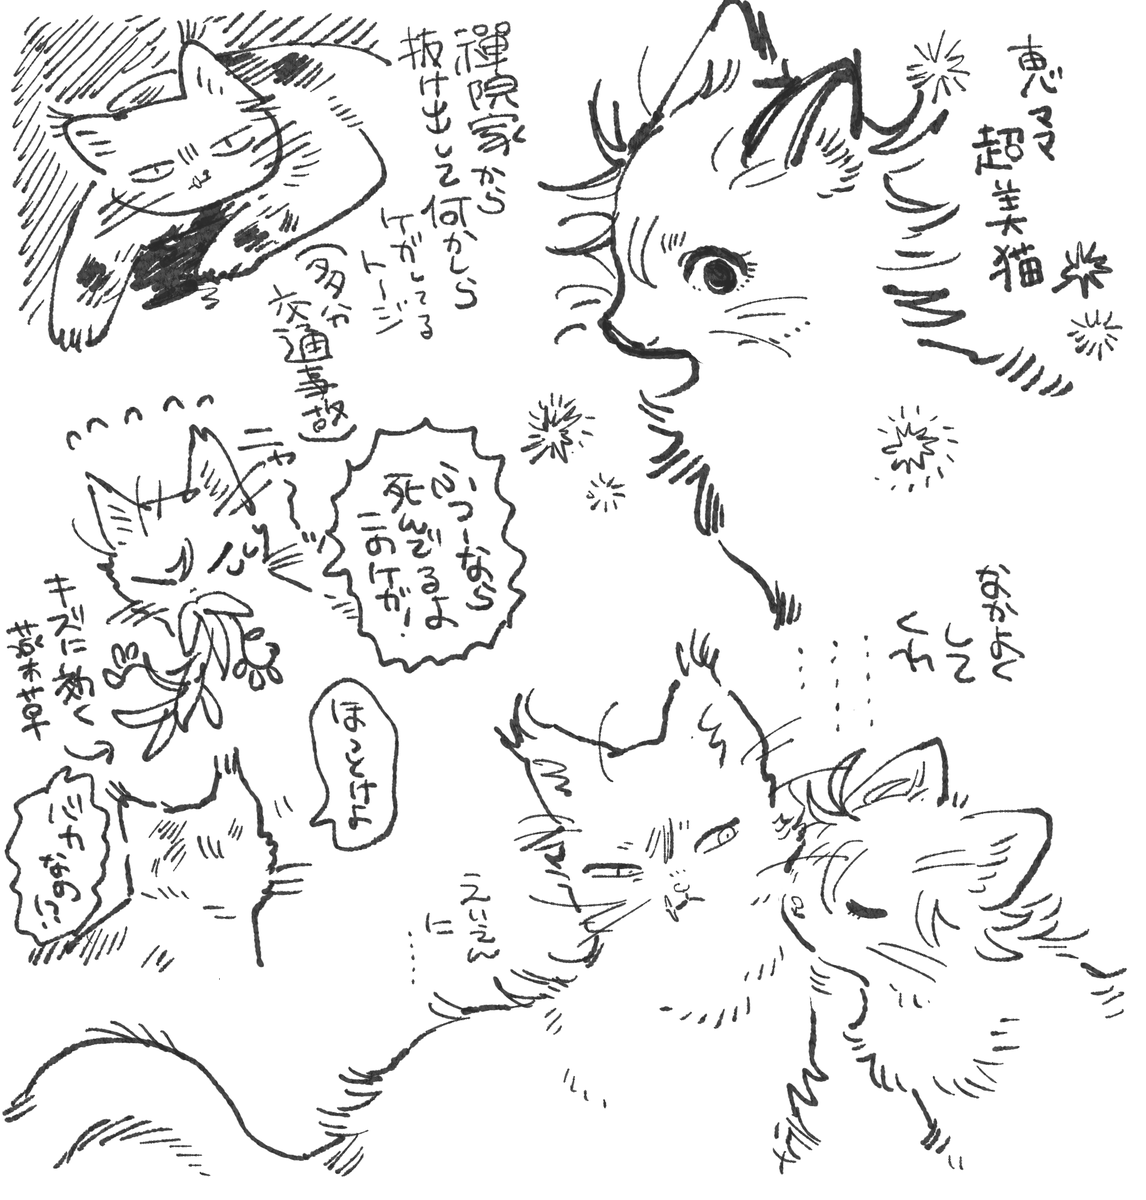 恵ママ
超美猫
禪院家から
抜け出して何かしら
ケガしてる
トージ
(多分
交通事故)
ニャ〜ッ
ふつーなら
死んでるよ
このケガ!
キズに効く
薬草
ほっとけよ
バカ
なの!?
なかよく
して
えいえん
に
……